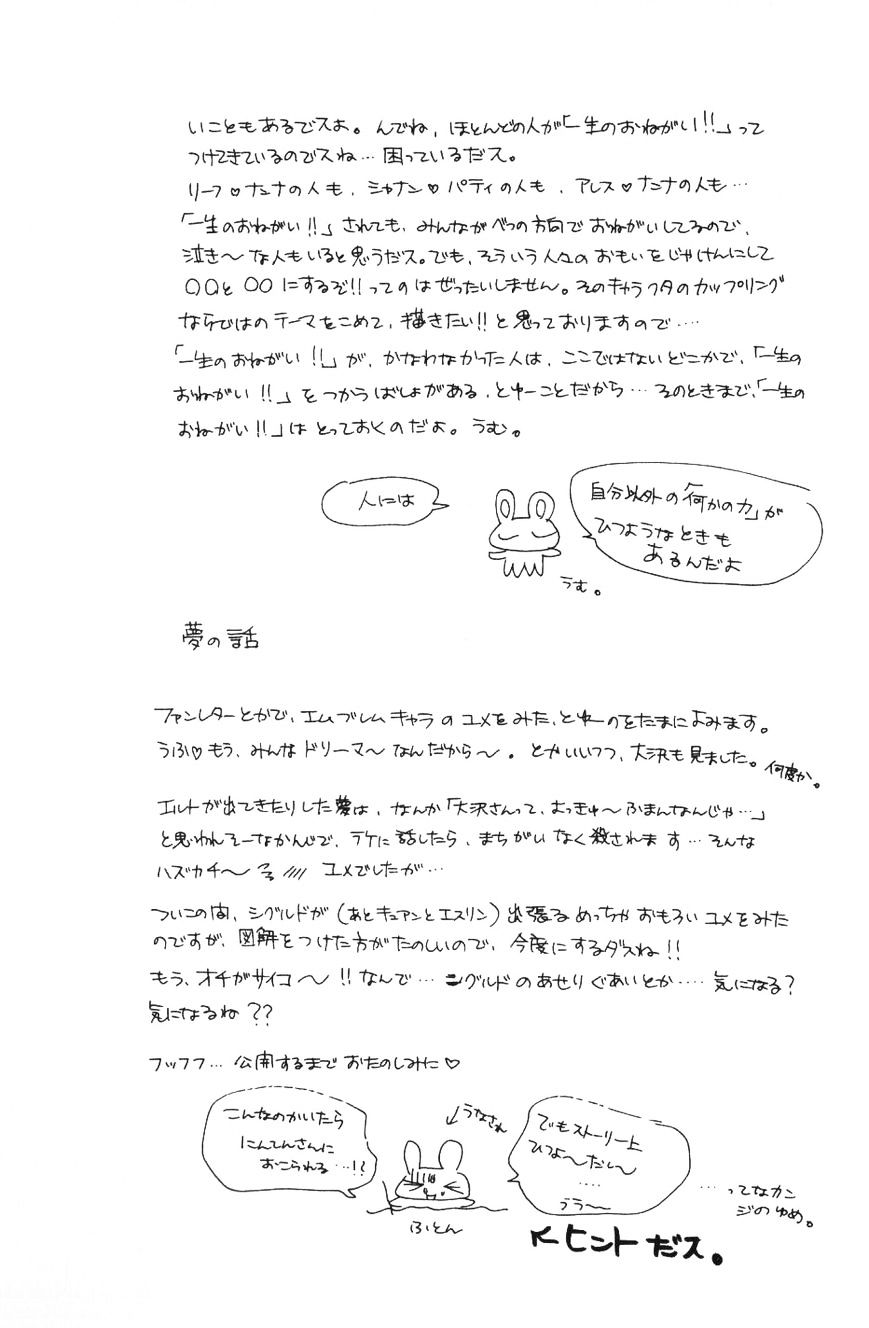 いこともあるでスよ。んでね、ほとんどの人が「一生のおねがい!!」って
つけてきているのでスね…困っているだス。
リーフ♡ナンナの人も、シャナン♡パティの人も、アレス♡ナンナの人も…
「一生のおねがい!!」されても、みんながべつの方向でおねがいしてるので、
泣き〜な人もいると思うだス。でも、そういう人々のおもいをじゃけんにして
○○と○○にするぞ!!ってのはぜったいしません。そのキャラ2人のカップリング
ならではのテーマをこめて、描きたい!!と思っておりますので‥‥
「一生のおねがい!!」が、かなわなかった人は、ここではないどこかで、「一生の
おねがい!!」をつかうばしょがある、とゆーことだから…そのときまで、「一生の
おねがい!!」はとっておくのだよ。うむ。
人には
自分以外の「何かの力」が
ひつようなときも
あるんだよ
うむ。
夢の話
ファンレターとかで、エムブレムキャラのユメをみた、とゆーのをたまによみます。
うふ♡もう、みんなドリーマ〜なんだから〜。とかいいつつ、大沢も見ました。何度か。
エルトが出てきたりした夢は、なんか「大沢さんって、よっきゅ〜ふまんなんじゃ…」
と思われそーなかんじで、ラケに話したら、まちがいなく殺されます…そんな
ハズカチ〜 ユメでしたが…
ついこの間、シグルドが(あとキュアンとエスリン)出張るめっちゃおもろいユメをみた
のですが、図解をつけた方がたのしいので、今度にするダスね!!
もう、オチがサイコ〜!!なんで…シグルドのあせりぐあいとか‥‥気になる?
気になるね??
フッフフ…公開するまでおたのしみに♡
こんなのかいたら
にんてんさんに
おこられる…!?
うなされ
ふとん
でもストーリー上
ひつよ〜だし〜
‥‥
うう〜
…ってなカン
ジのゆめ。
←ヒントだス。